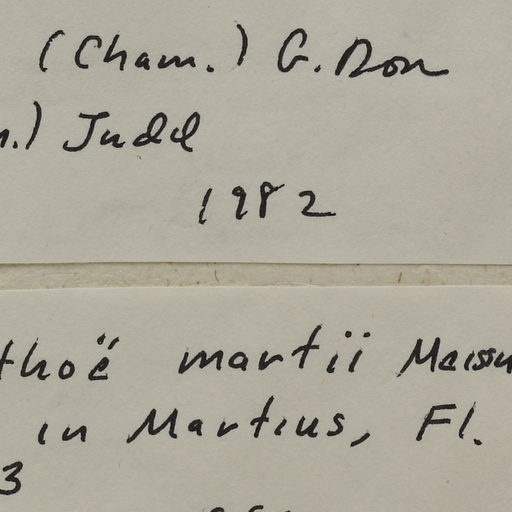 (Cham.) G. Don
n.) Judd
1982
thoë martii Meissn
in Martius, Fl.
3